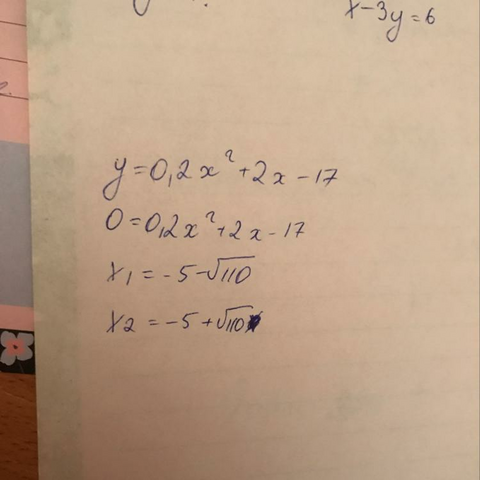 x-3y=6
y=0,2x²+2x-17
0=0,2x²+2x-17
x1=-5-√110
x2=-5+√110